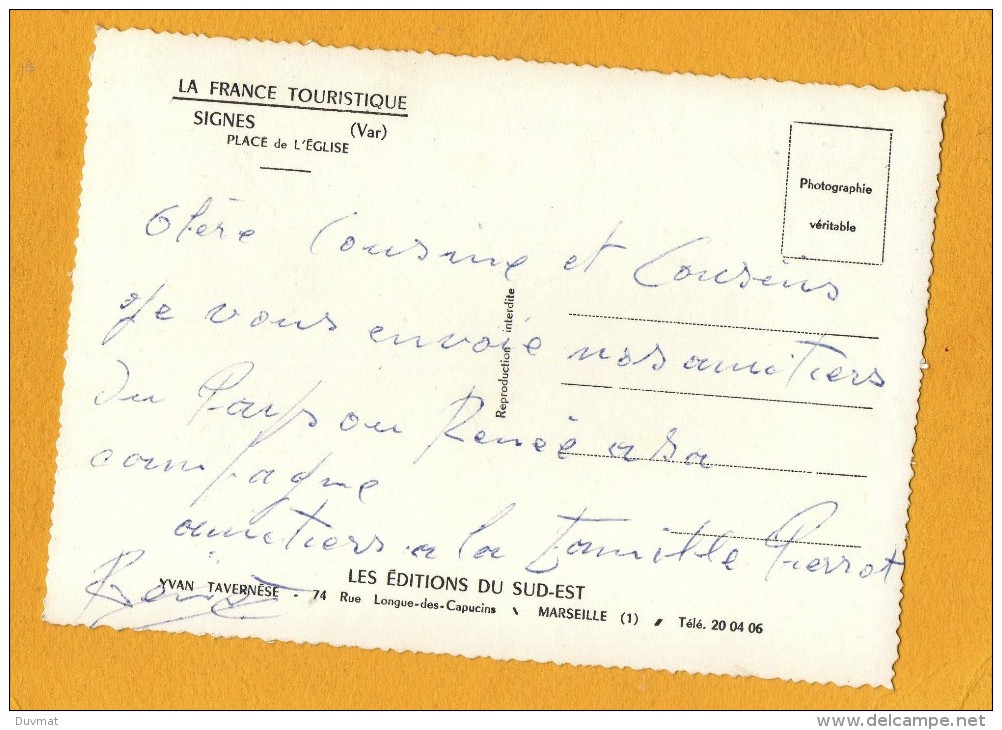 LA FRANCE TOURISTIQUE
SIGNES (Var)
PLACE de L'ÉGLISE
Photographie
véritable
Reproduction interdite
Chère Cousine et Cousins
Je vous envoie nos amitiers
Du Pays ou Renée a sa
campagne
amitiers a la Famille Pierrot
LES ÉDITIONS DU SUD-EST
YVAN TAVERNÈSE - 74 Rue Longue-des-Capucins \ MARSEILLE (1) Télé. 20 04 06
Duvmat
delcampe.net